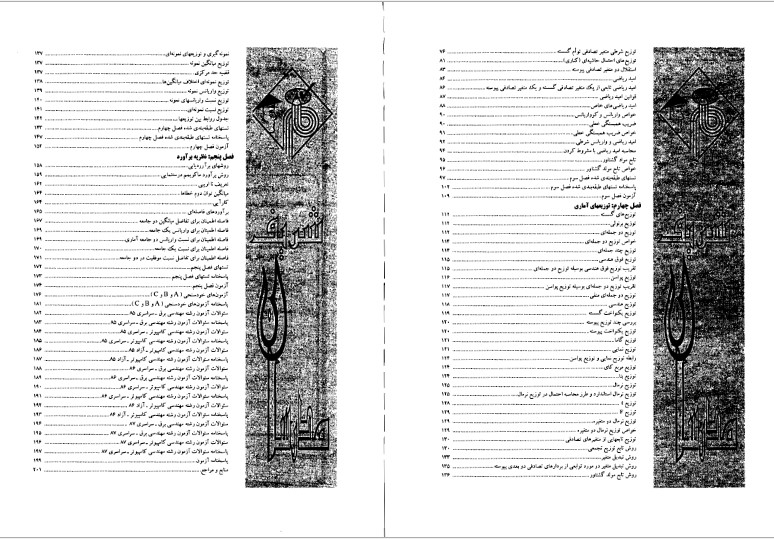 توزیع شرطی متغیر تصادفی توأم گسسته ... ۷۶
توزیع‌های احتمال حاشیه‌ای (کناری) ... ۸۱
استقلال دو متغیر تصادفی پیوسته ... ۸۳
امید ریاضی ... ۸۶
امید ریاضی تابعی از یک متغیر تصادفی گسسته و یک متغیر تصادفی پیوسته ... ۸۶
قوانین امید ریاضی ... ۸۷
امید ریاضی‌های خاص ... ۸۸
خواص واریانس و کوواریانس ... ۹۰
ضریب همبستگی خطی ... ۹۰
خواص ضریب همبستگی خطی ... ۹۱
امید ریاضی و واریانس شرطی ... ۹۲
محاسبه امید ریاضی با مشروط کردن ... ۹۴
تابع مولد گشتاور ... ۹۵
خواص تابع مولد گشتاور ... ۹۶
تستهای طبقه‌بندی شده فصل سوم ... ۹۷
پاسخنامه تستهای طبقه‌بندی شده فصل سوم ... ۱۰۲
آزمون فصل سوم ... ۱۰۹
فصل چهارم: توزیعهای آماری
توزیع‌های گسسته ... ۱۱۲
توزیع برنولی ... ۱۱۲
توزیع دو جمله‌ای ... ۱۱۲
خواص توزیع دو جمله‌ای ... ۱۱۳
توزیع چند جمله‌ای ... ۱۱۴
توزیع فوق هندسی ... ۱۱۵
تقریب توزیع فوق هندسی بوسیله توزیع دو جمله‌ای ... ۱۱۵
توزیع پواسن ... ۱۱۶
تقریب توزیع دو جمله‌ای بوسیله توزیع پواسن ... ۱۱۷
توزیع دو جمله‌ای منفی ... ۱۱۷
توزیع هندسی ... ۱۱۸
توزیع یکنواخت گسسته ... ۱۱۹
بررسی چند توزیع پیوسته ... ۱۲۰
توزیع یکنواخت پیوسته ... ۱۲۰
توزیع گاما ... ۱۲۱
توزیع نمایی ... ۱۲۱
رابطه توزیع نمایی و توزیع پواسن ... ۱۲۳
توزیع مربع کای ... ۱۲۴
توزیع بتا ... ۱۲۴
توزیع نرمال ... ۱۲۵
توزیع نرمال استاندارد و طرز محاسبه احتمال در توزیع نرمال ... ۱۲۵
توزیع t ... ۱۲۸
توزیع F
توزیع نرمال دو متغیره ... ۱۲۹
خواص توزیع نرمال دو متغیره ... ۱۲۹
توزیع تابعهایی از متغیرهای تصادفی ... ۱۳۰
روش تابع توزیع تجمعی ... ۱۳۰
روش تبدیل متغیر ... ۱۳۳
روش تبدیل متغیر در مورد توابعی از بردارهای تصادفی دو بعدی پیوسته ... ۱۳۵
روش تابع مولد گشتاور ... ۱۳۶
نمونه گیری و توزیعهای نمونه‌ای ... ۱۳۷
توزیع میانگین نمونه ... ۱۳۷
قضیه حد مرکزی ... ۱۳۷
توزیع نمونه‌ای اختلاف میانگین‌ها ... ۱۳۸
توزیع واریانس نمونه ... ۱۳۹
توزیع نسبت واریانسهای نمونه ... ۱۴۰
توزیع نسبت نمونه‌ای ... ۱۴۱
جدول روابط بین توزیعها ... ۱۴۲
تستهای طبقه‌بندی شده فصل چهارم ... ۱۴۳
پاسخنامه تستهای طبقه‌بندی شده فصل چهارم ... ۱۴۷
آزمون فصل چهارم ... ۱۵۴
فصل پنجم: نظریه برآورد
روشهای برآوردیابی ... ۱۵۸
روش برآورد ماکزیمم درستنمایی ... ۱۵۹
تعریف نا اریبی ... ۱۶۲
میانگین توان دوم خطاها ... ۱۶۴
کارآیی ... ۱۶۴
برآوردهای فاصله‌ای ... ۱۶۵
فاصله اطمینان برای تفاضل میانگین دو جامعه ... ۱۶۷
فاصله اطمینان برای واریانس یک جامعه ... ۱۶۸
فاصله اطمینان برای نسبت واریانس دو جامعه آماری ... ۱۶۹
فاصله اطمینان برای نسبت یک جامعه ... ۱۷۰
فاصله اطمینان برای تفاضل نسبت موفقیت در دو جامعه ... ۱۷۱
تستهای فصل پنجم ... ۱۷۲
پاسخنامه تستهای فصل پنجم ... ۱۷۳
آزمون فصل پنجم ... ۱۷۴
آزمون‌های خودسنجی (A و B و C) ... ۱۷۶
پاسخنامه آزمون‌های خودسنجی (A و B و C) ... ۱۸۱
سئوالات آزمون رشته مهندسی برق ـ سراسری ۸۵ ... ۱۸۲
پاسخنامه سئوالات آزمون رشته مهندسی برق ـ سراسری ۸۵ ... ۱۸۳
سئوالات آزمون رشته مهندسی کامپیوتر ـ سراسری ۸۵ ... ۱۸۴
پاسخنامه سئوالات آزمون رشته مهندسی کامپیوتر ـ سراسری ۸۵ ... ۱۸۵
سئوالات آزمون رشته مهندسی کامپیوتر ـ آزاد ۸۵ ... ۱۸۶
پاسخنامه سئوالات آزمون رشته مهندسی کامپیوتر ـ آزاد ۸۵ ... ۱۸۷
سئوالات آزمون رشته مهندسی برق ـ سراسری ۸۶ ... ۱۸۸
پاسخنامه سئوالات آزمون رشته مهندسی برق ـ سراسری ۸۶ ... ۱۸۹
سئوالات آزمون رشته مهندسی کامپیوتر ـ سراسری ۸۶ ... ۱۹۰
پاسخنامه سئوالات آزمون رشته مهندسی کامپیوتر ـ سراسری ۸۶ ... ۱۹۱
سئوالات آزمون رشته مهندسی کامپیوتر ـ آزاد ۸۶ ... ۱۹۲
پاسخنامه سئوالات آزمون رشته مهندسی کامپیوتر ـ آزاد ۸۶ ... ۱۹۳
سئوالات آزمون رشته مهندسی برق ـ سراسری ۸۷ ... ۱۹۴
پاسخنامه سئوالات آزمون رشته مهندسی برق ـ سراسری ۸۷ ... ۱۹۵
سئوالات آزمون رشته مهندسی کامپیوتر ـ سراسری ۸۷ ... ۱۹۶
پاسخنامه سئوالات آزمون رشته مهندسی کامپیوتر ـ سراسری ۸۷ ... ۱۹۷
پاسخنامه آزمون ... ۱۹۹
منابع و مراجع ... ۲۰۱